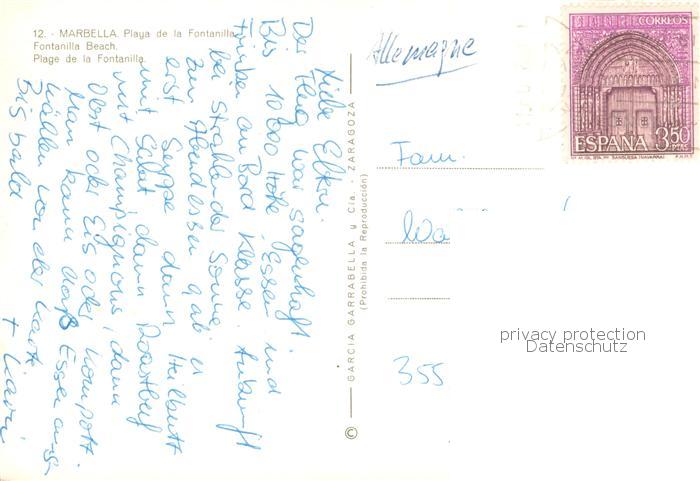 12. - MARBELLA. Playa de la Fontanilla.
Fontanilla Beach.
Plage de la Fontanilla.
Liebe Eltern.
Der Flug war sagenhaft
Bis 10 000 Höhe, Essen und
Trinken an Bord Klasse. Ankunft
bei strahlender Sonne.
Zum Abendessen gab's
erst Suppe dann Heilbutt
mit Salat dann Roastbeef
mit Champignons, dann
Obst oder Eis oder Kompott.
Man kann das Essen
wählen von der Karte
Bis bald
+
GARCIA GARRABELLA y Cía. - ZARAGOZA
(Prohibida la Reproducción)
©
Allemagne
CORREOS
ESPAÑA 3,50
PTAS
SANGUESA (NAVARRA)
F.N.M.T.
Fam.
Wa
355
privacy protection
Datenschutz